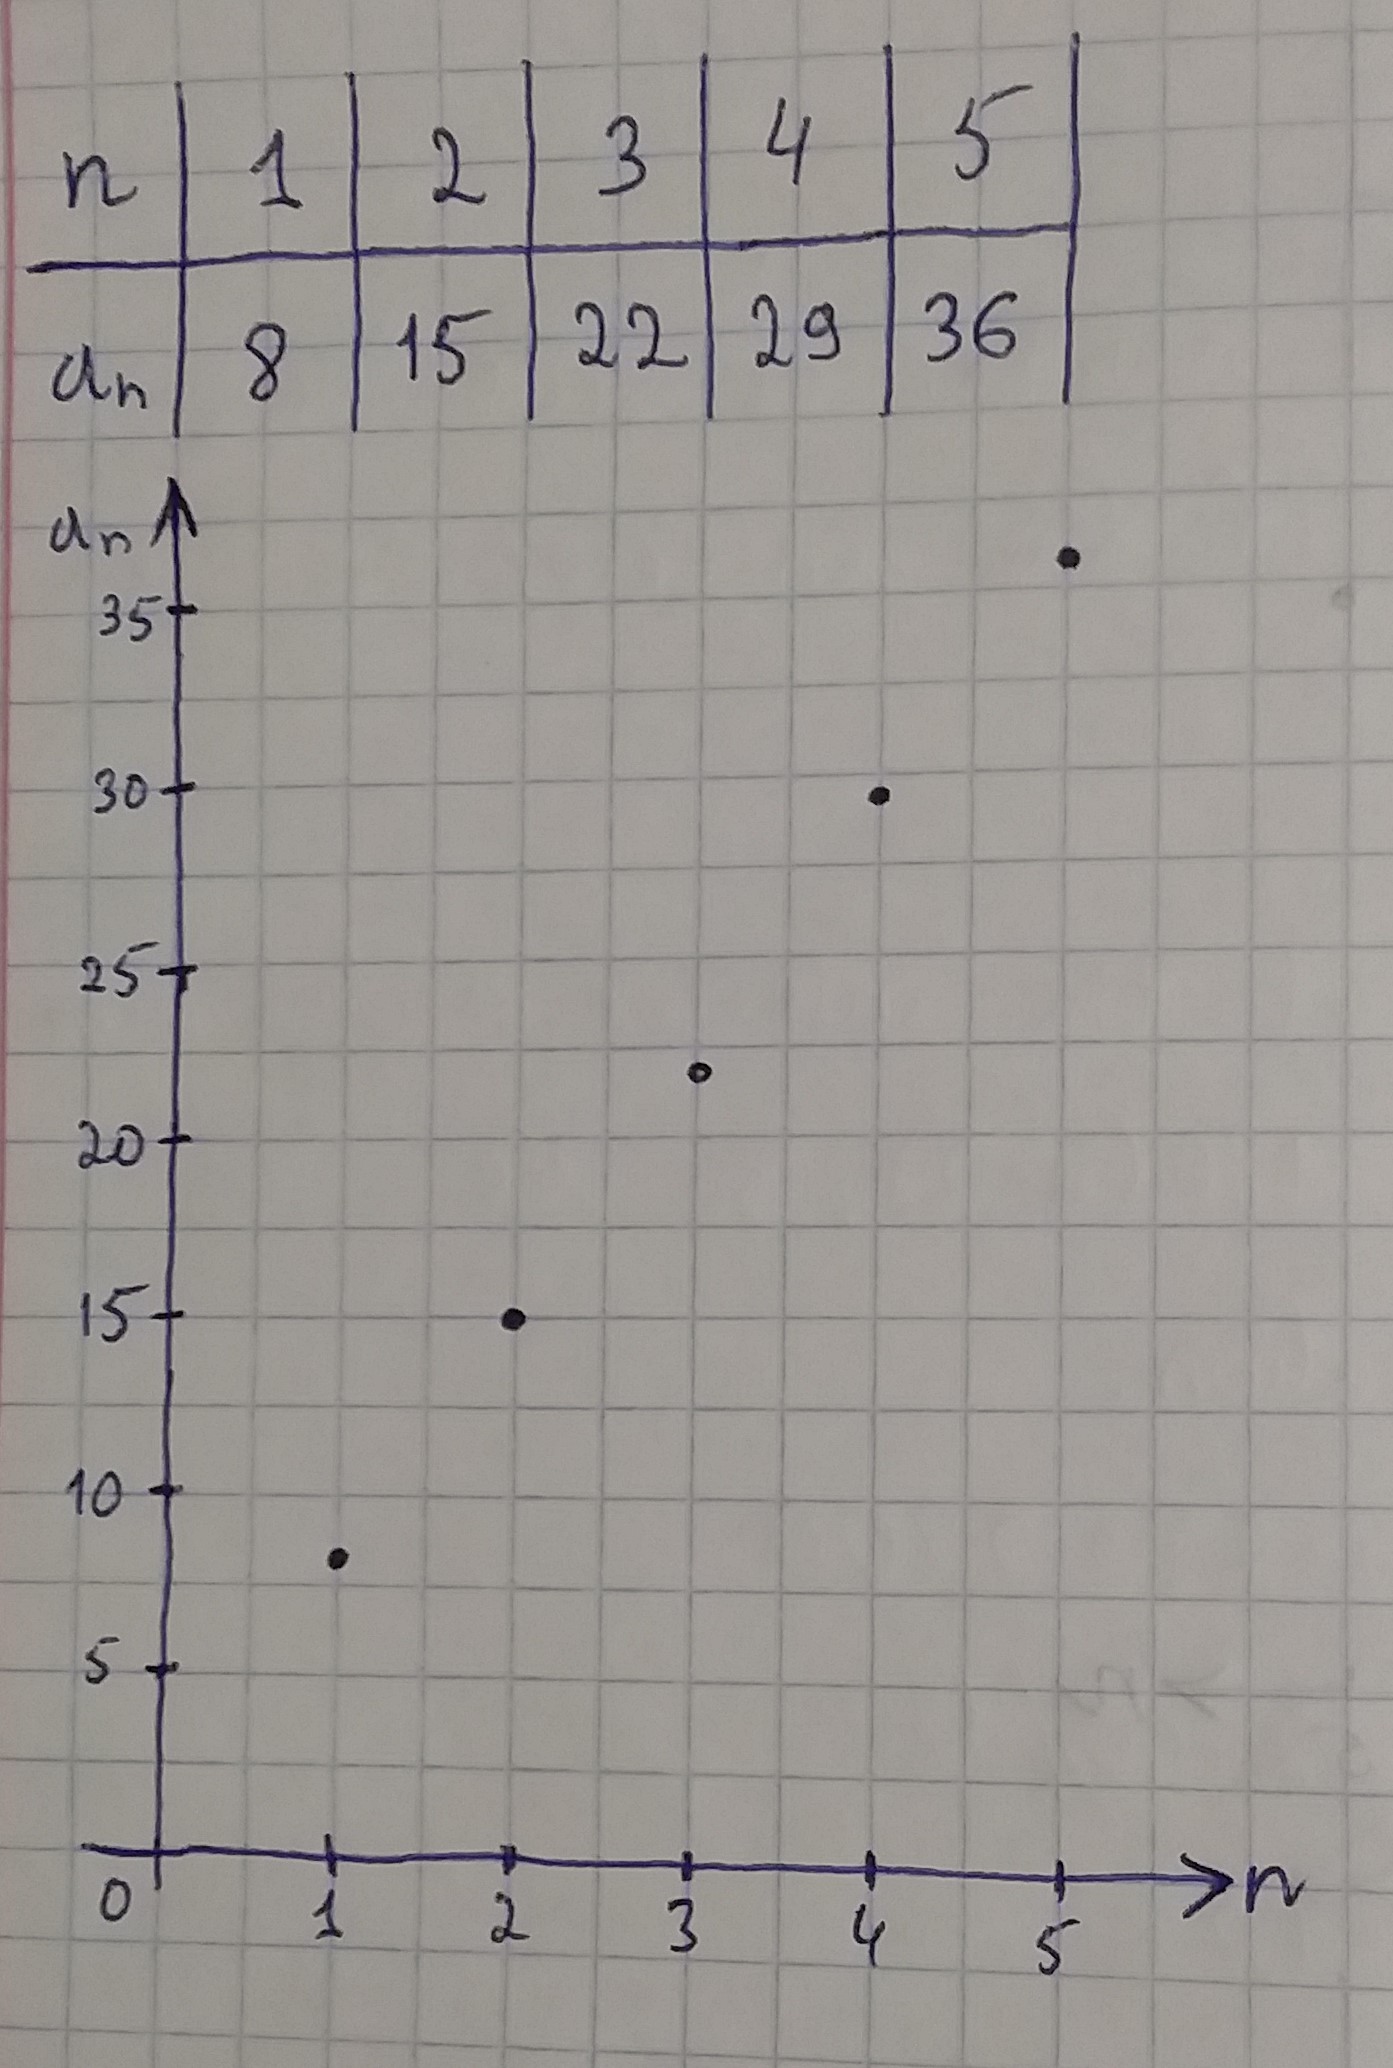 n 1 2 3 4 5
aₙ 8 15 22 29 36
aₙ
35
30
25
20
15
10
5
0 1 2 3 4 5 n